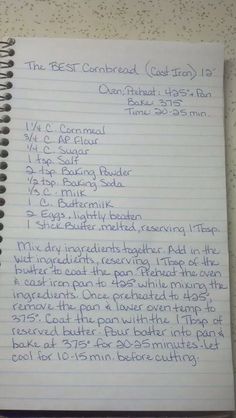 The BEST Cornbread (Cast Iron) 12"
Oven, Preheat: 425° + Pan
Bake 375°
Time: 20-25 min.
1 1/4 C. Cornmeal
3/4 C. AP Flour
1/4 C. Sugar
1 tsp. Salt
2 tsp Baking Powder
1/2 tsp. Baking Soda
1/3 C. Milk
1 C. Buttermilk
2 Eggs, lightly beaten
1 stick Butter, melted, reserving 1 Tbsp.
Mix dry ingredients together. Add in the
wet ingredients, reserving 1 Tbsp of the
butter to coat the pan. Preheat the oven
& cast iron pan to 425° while mixing the
ingredients. Once preheated to 425°,
remove the pan & lower oven temp to
375°. Coat the pan with the 1 Tbsp of
reserved butter. Pour batter into pan &
bake at 375° for 20-25 minutes. Let
cool for 10-15 min. before cutting.